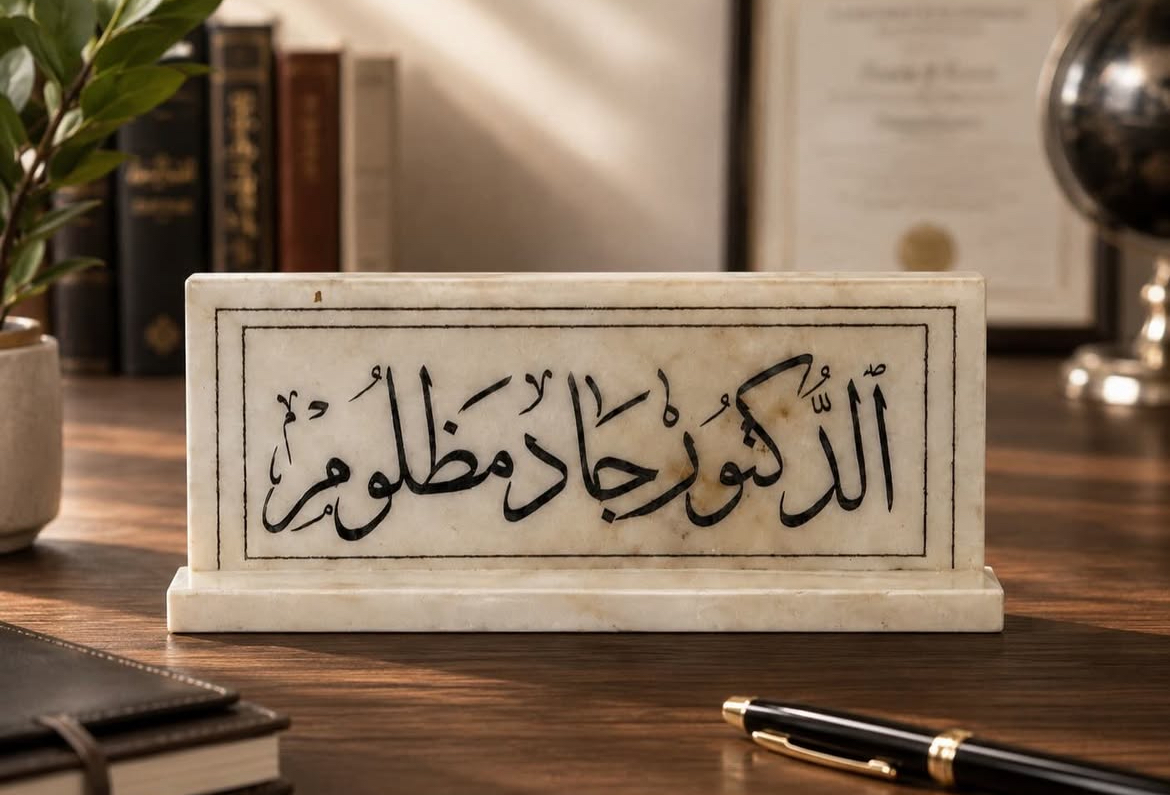 الدُّكتور جاد مظلوم